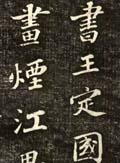 書王定國
畫煙江